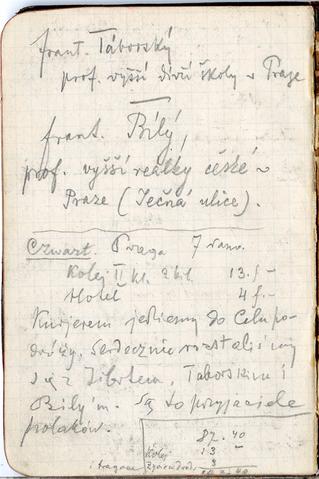 frant. Táborský
prof. vyšší dívčí školy v Praze
frant. Bílý,
prof. vyšší reálky české v
Praze (Ječná ulice).
Czwart. Praga 7 rano.
Kolej II kl. 2 bil. 13 f –
Hotel 4 f. –
Kurjerem jedziemy do Celu po-
dróży, serdecznie rozstaliśmy
się z Zibrtem, Taborskim i
Bilým. Są to przyjaciele
polaków.
87.40
Kolej 13 –
i tragarze 3